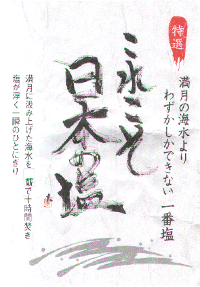 特選
満月の海水より
わずかしかできない一番塩
これこそ
日本の塩
満月に汲み上げた海水を
塩が浮く一瞬のひとにぎり